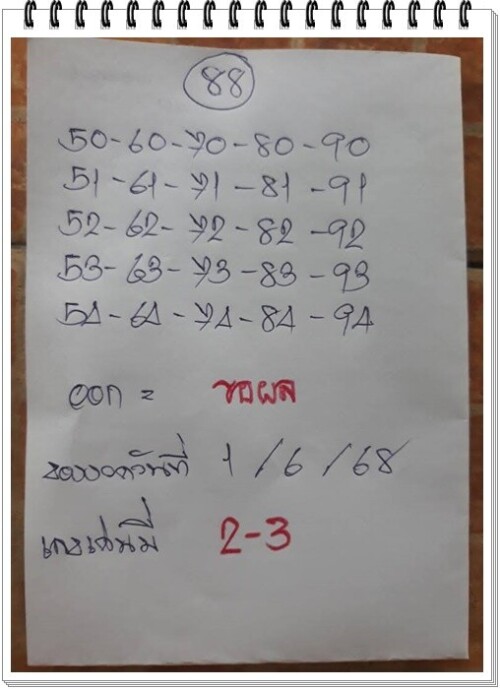 88
50-60-70-80-90
51-61-71-81-91
52-62-72-82-92
53-63-73-83-93
54-64-74-84-94
ออก = ขอผล
ของงวดวันที่ 1/6/68
เลขเด่นมี 2-3